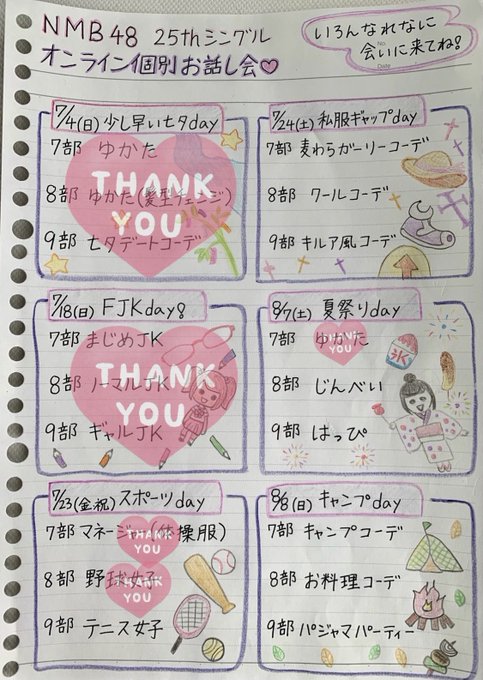 NMB48 25thシングル
オンライン個別お話し会♡
いろんなれなに
会いに来てね!
No.
Date
7/4(日)少し早い七夕day
7部 ゆかた
8部 ゆかた(髪型チェンジ)
9部 七夕デートコーデ
THANK
YOU
7/24(土)私服ギャップday
7部 麦わらガーリーコーデ
8部 クールコーデ
9部 キルア風コーデ
7/18(日) FJKday
7部 まじめJK
8部 ノーマルJK
9部 ギャルJK
THANK
YOU
8/7(土) 夏祭りday
7部 ゆかた
8部 じんべい
9部 はっぴ
THANK
YOU
氷
7/23(金祝)スポーツday
7部 マネージャー(体操服)
8部 野球女子
9部 テニス女子
THANK
YOU
THANK
YOU
8/8(日) キャンプday
7部 キャンプコーデ
8部 お料理コーデ
9部 パジャマパーティー